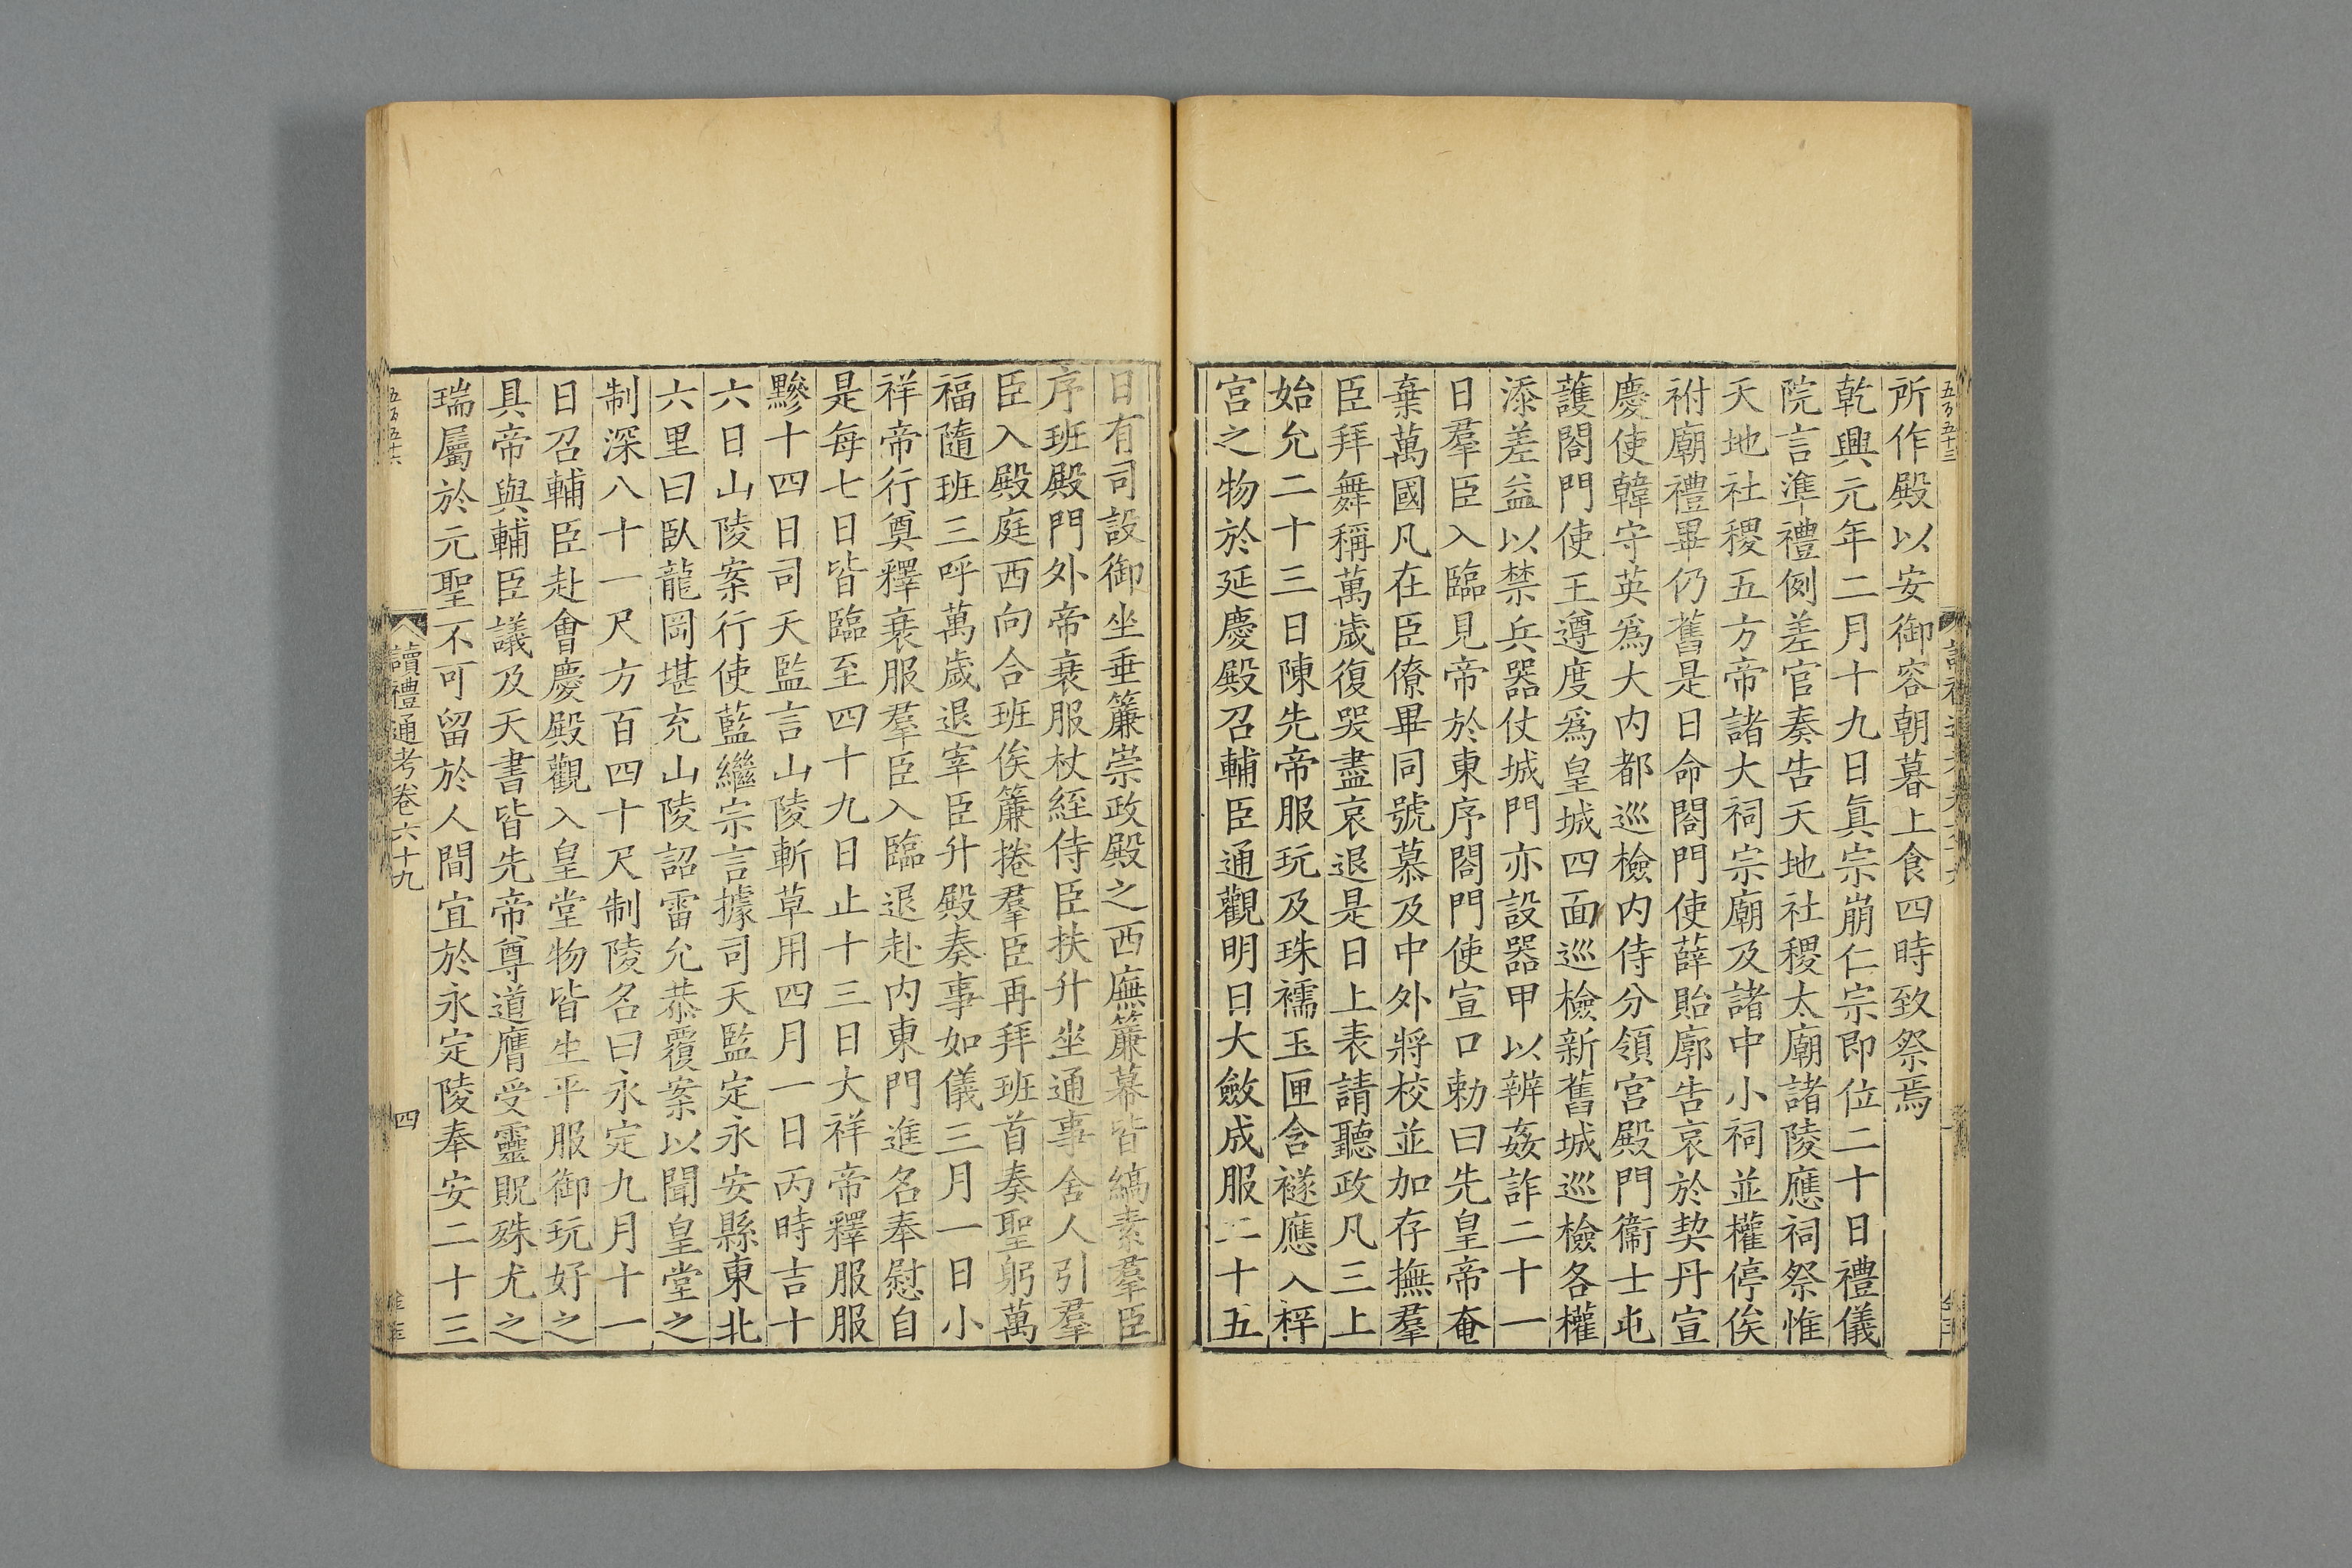 所作殿以安御容朝暮上食四時致祭焉
乾興元年二月十九日眞宗崩仁宗即位二十日禮儀
院言準禮例差官奏告天地社稷太廟諸陵應祠祭惟
天地社稷五方帝諸大祠宗廟及諸中小祠並權停俟
祔廟禮畢仍舊是日命閤門使薛貽廓告哀於契丹宣
慶使韓守英爲大内都巡檢内侍分領宮殿門衞士屯
護閤門使王遵度爲皇城四面巡檢新舊城巡檢各權
添差益以禁兵器仗城門亦設器甲以辨姦詐二十一
日羣臣入臨見帝於東序閤門使宣口勅曰先皇帝奄
棄萬國凡在臣僚畢同號慕及中外將校並加存撫羣
臣拜舞稱萬歲復哭盡哀退是日上表請聽政凡三上
始允二十三日陳先帝服玩及珠襦玉匣含襚應入梓
宮之物於延慶殿召輔臣通觀明日大斂成服二十五
日有司設御坐垂簾崇政殿之西廡簾幕皆縞素羣臣
序班殿門外帝衰服杖絰侍臣扶升坐通事舍人引羣
臣入殿庭西向合班俟簾捲羣臣再拜班首奏聖躬萬
福隨班三呼萬歲退宰臣升殿奏事如儀三月一日小
祥帝行奠釋衰服羣臣入臨退赴内東門進名奉慰自
是每七日皆臨至四十九日止十三日大祥帝釋服服
黲十四日司天監言山陵斬草用四月一日丙時吉十
六日山陵案行使藍繼宗言據司天監定永安縣東北
六里曰臥龍岡堪充山陵詔雷允恭覆案以聞皇堂之
制深八十一尺方百四十尺制陵名曰永定九月十一
日召輔臣赴會慶殿觀入皇堂物皆生平服御玩好之
具帝與輔臣議及天書皆先帝尊道膺受靈貺殊尤之
瑞屬於元聖不可留於人間宜於永定陵奉安二十三
讀禮通考卷六十九
四